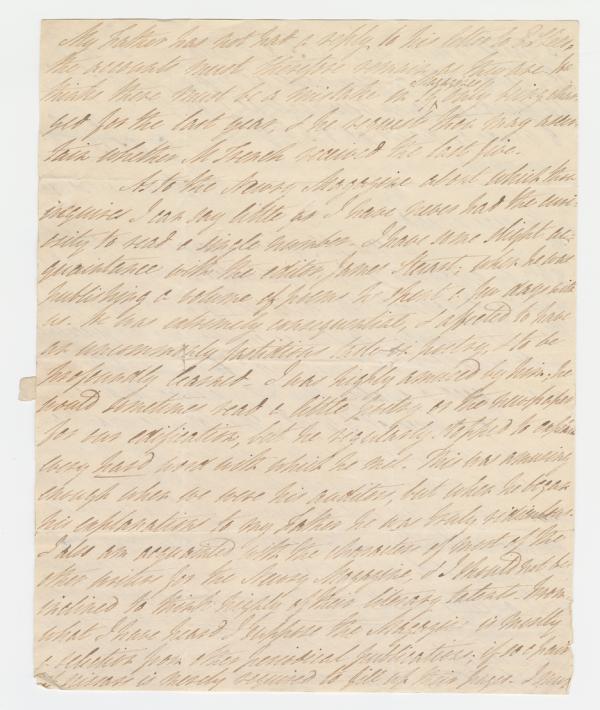 My Father has not had a reply to his letter to
the accounts must therefore remain as they are he
thinks there must be a mistake in Magazines
for the last year, & he requests thou may ascer-
tain whether M French received the last five.
As to the Newry Magazine about which thou
inquires I can say little as I have never had the curi-
osity to read a single number. I have some slight ac-
quaintance with the editor James Stuart; when he was
publishing a volume of poems he spent a few days with
us. He was extremely consequential, & affected to have
an uncommonly fastidious taste in poetry, & to be
profoundly learned. I was highly amused by him, he
would sometimes read a little poetry or the newspaper
for our edification, but he regularly stopped to explain
every hard word with which he met. This was amusing
enough when we were his auditors, but when he began
his explanations to my Father he was truly ridiculous.
I also am acquainted with the characters of most of the
other writers for the Newry Magazine, & I should not be
inclined to think highly of their literary talents. From
what I have heard I suppose the Magazine is mostly
a selection from other periodical publications; if so a pair
of scissars is merely required to fill up their pages. I must